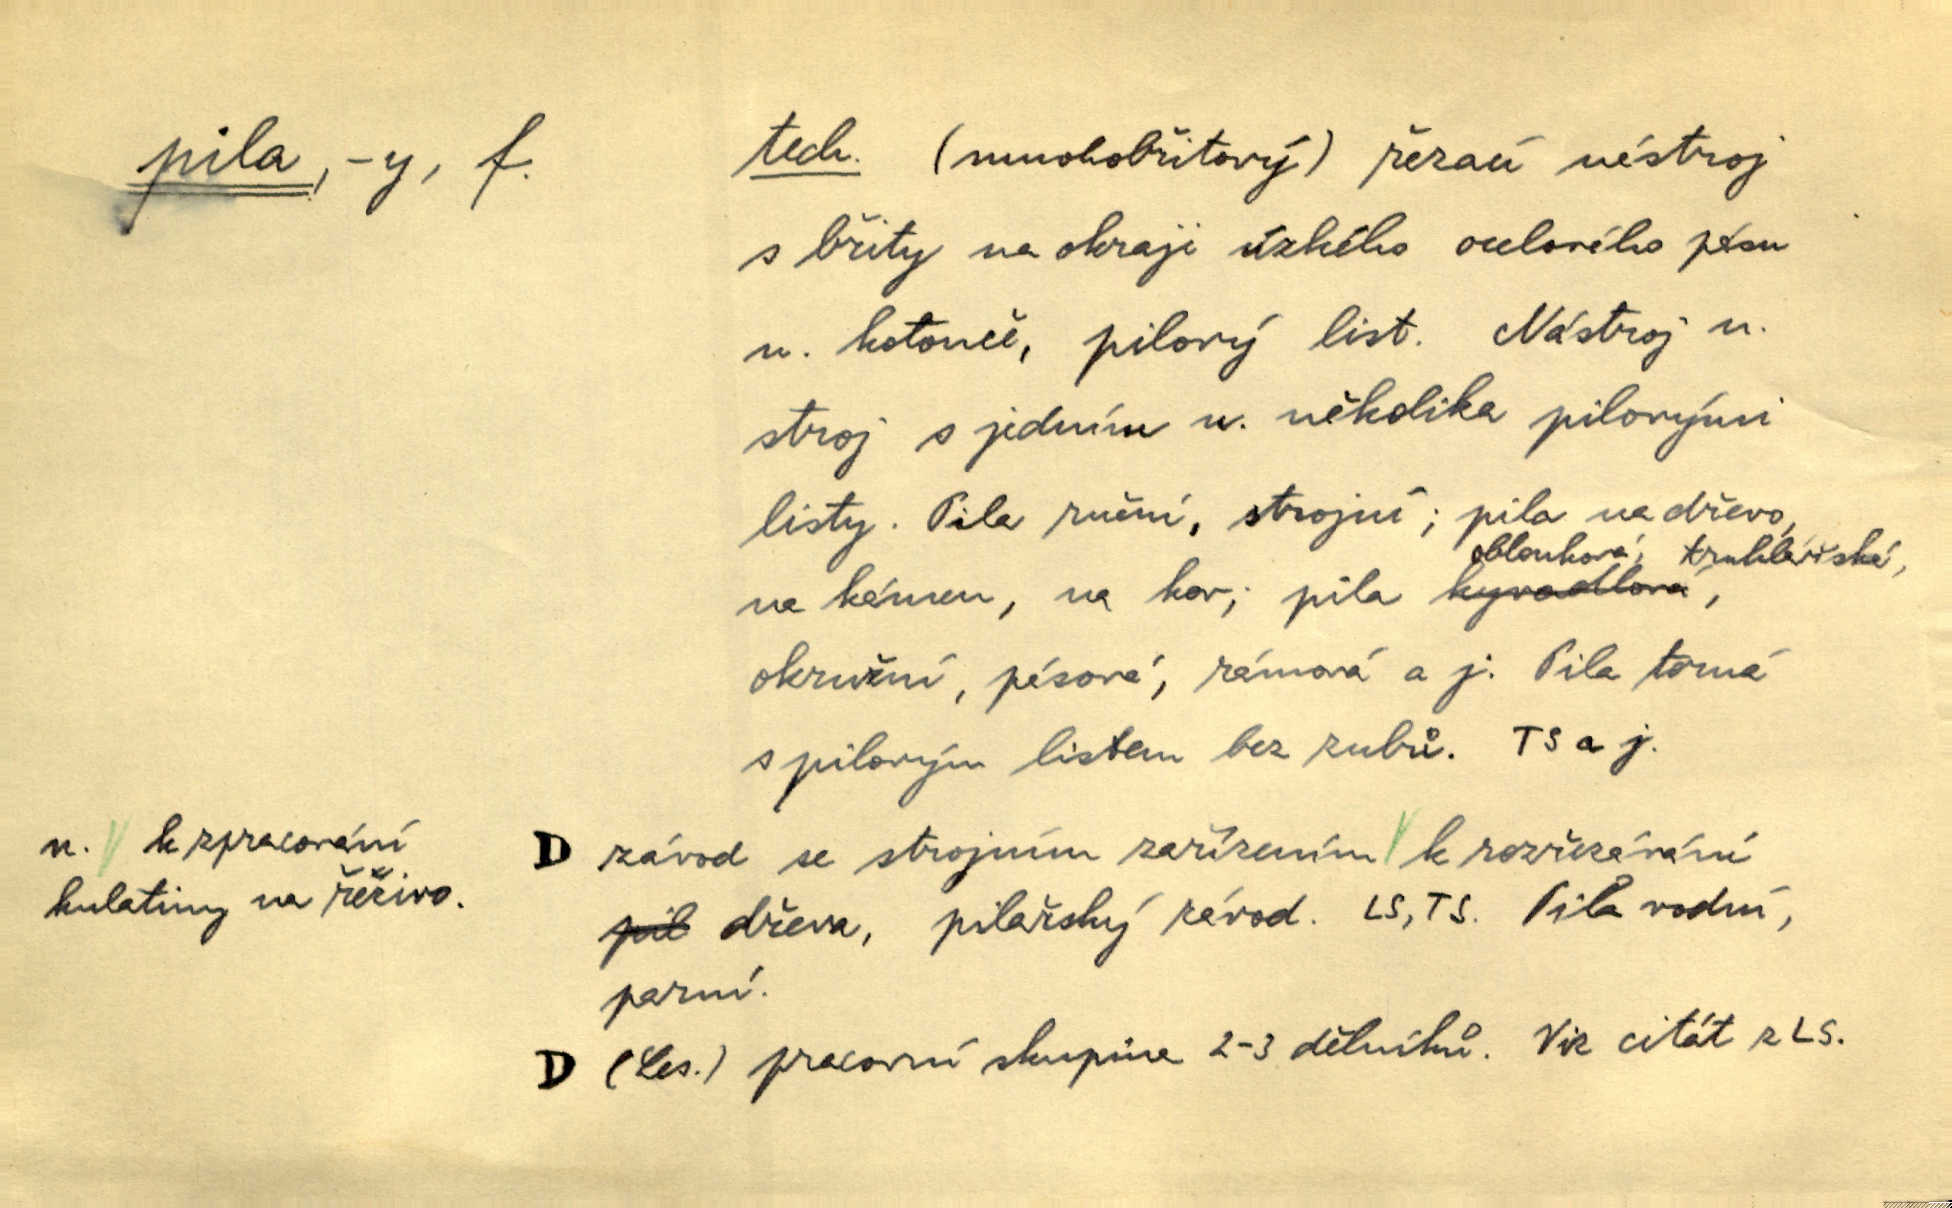 pila, -y, f.
tech. (mnohobřitový) řezací nástroj
s břity na okraji úzkého ocelového pásu
n. kotouče, pilový list. Nástroj n.
stroj s jedním n. několika pilovými
listy. Pila ruční, strojní; pila na dřevo,
oblouková, truhlářská,
na kámen, na kov; pila kyvadlová,
okružní, pásová, rámová a j. Pila tarná
s pilovým listem bez zubů. TS a j.
D závod se strojním zařízením √ k rozřezávání
pil dřeva, pilařský závod. LS, TS. Pila vodní,
parní.
n. √ k zpracování
kulatiny na řezivo.
D (Les.) pracovní skupina 2-3 dělníků. Viz citát z LS.